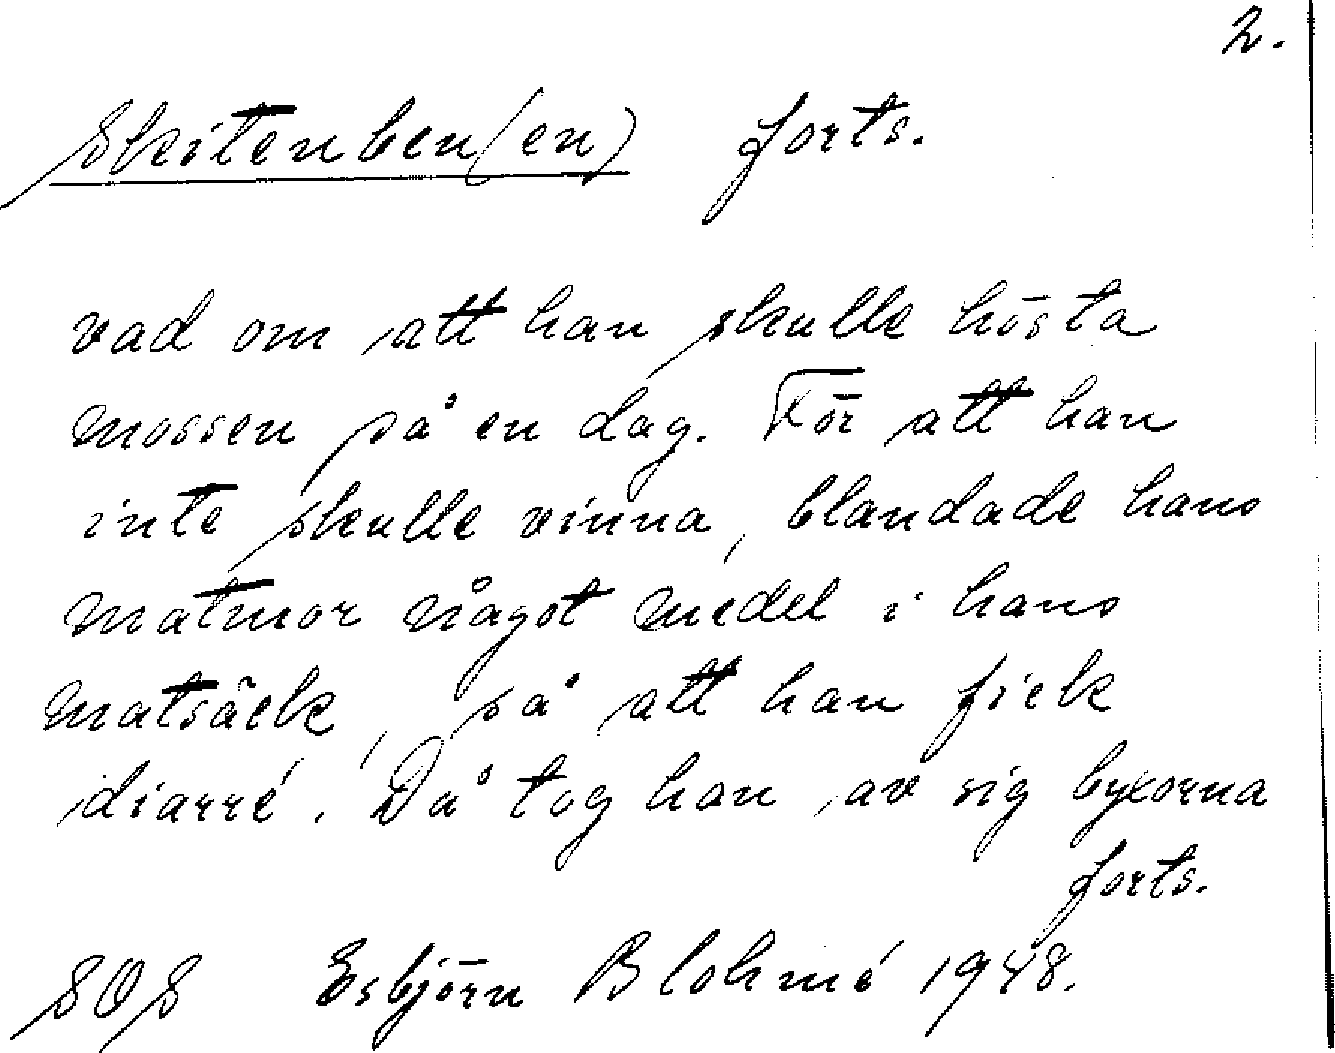 2.
Skitenben(en) forts.
vad om att han skulle hösta
mossen på en dag. För att han
inte skulle vinna, blandade hans
matmor något medel i hans
matsäck, så att han fick
diarré. Då tog han av sig byxorna
forts.
SOS Esbjörn Blohmé 1948.